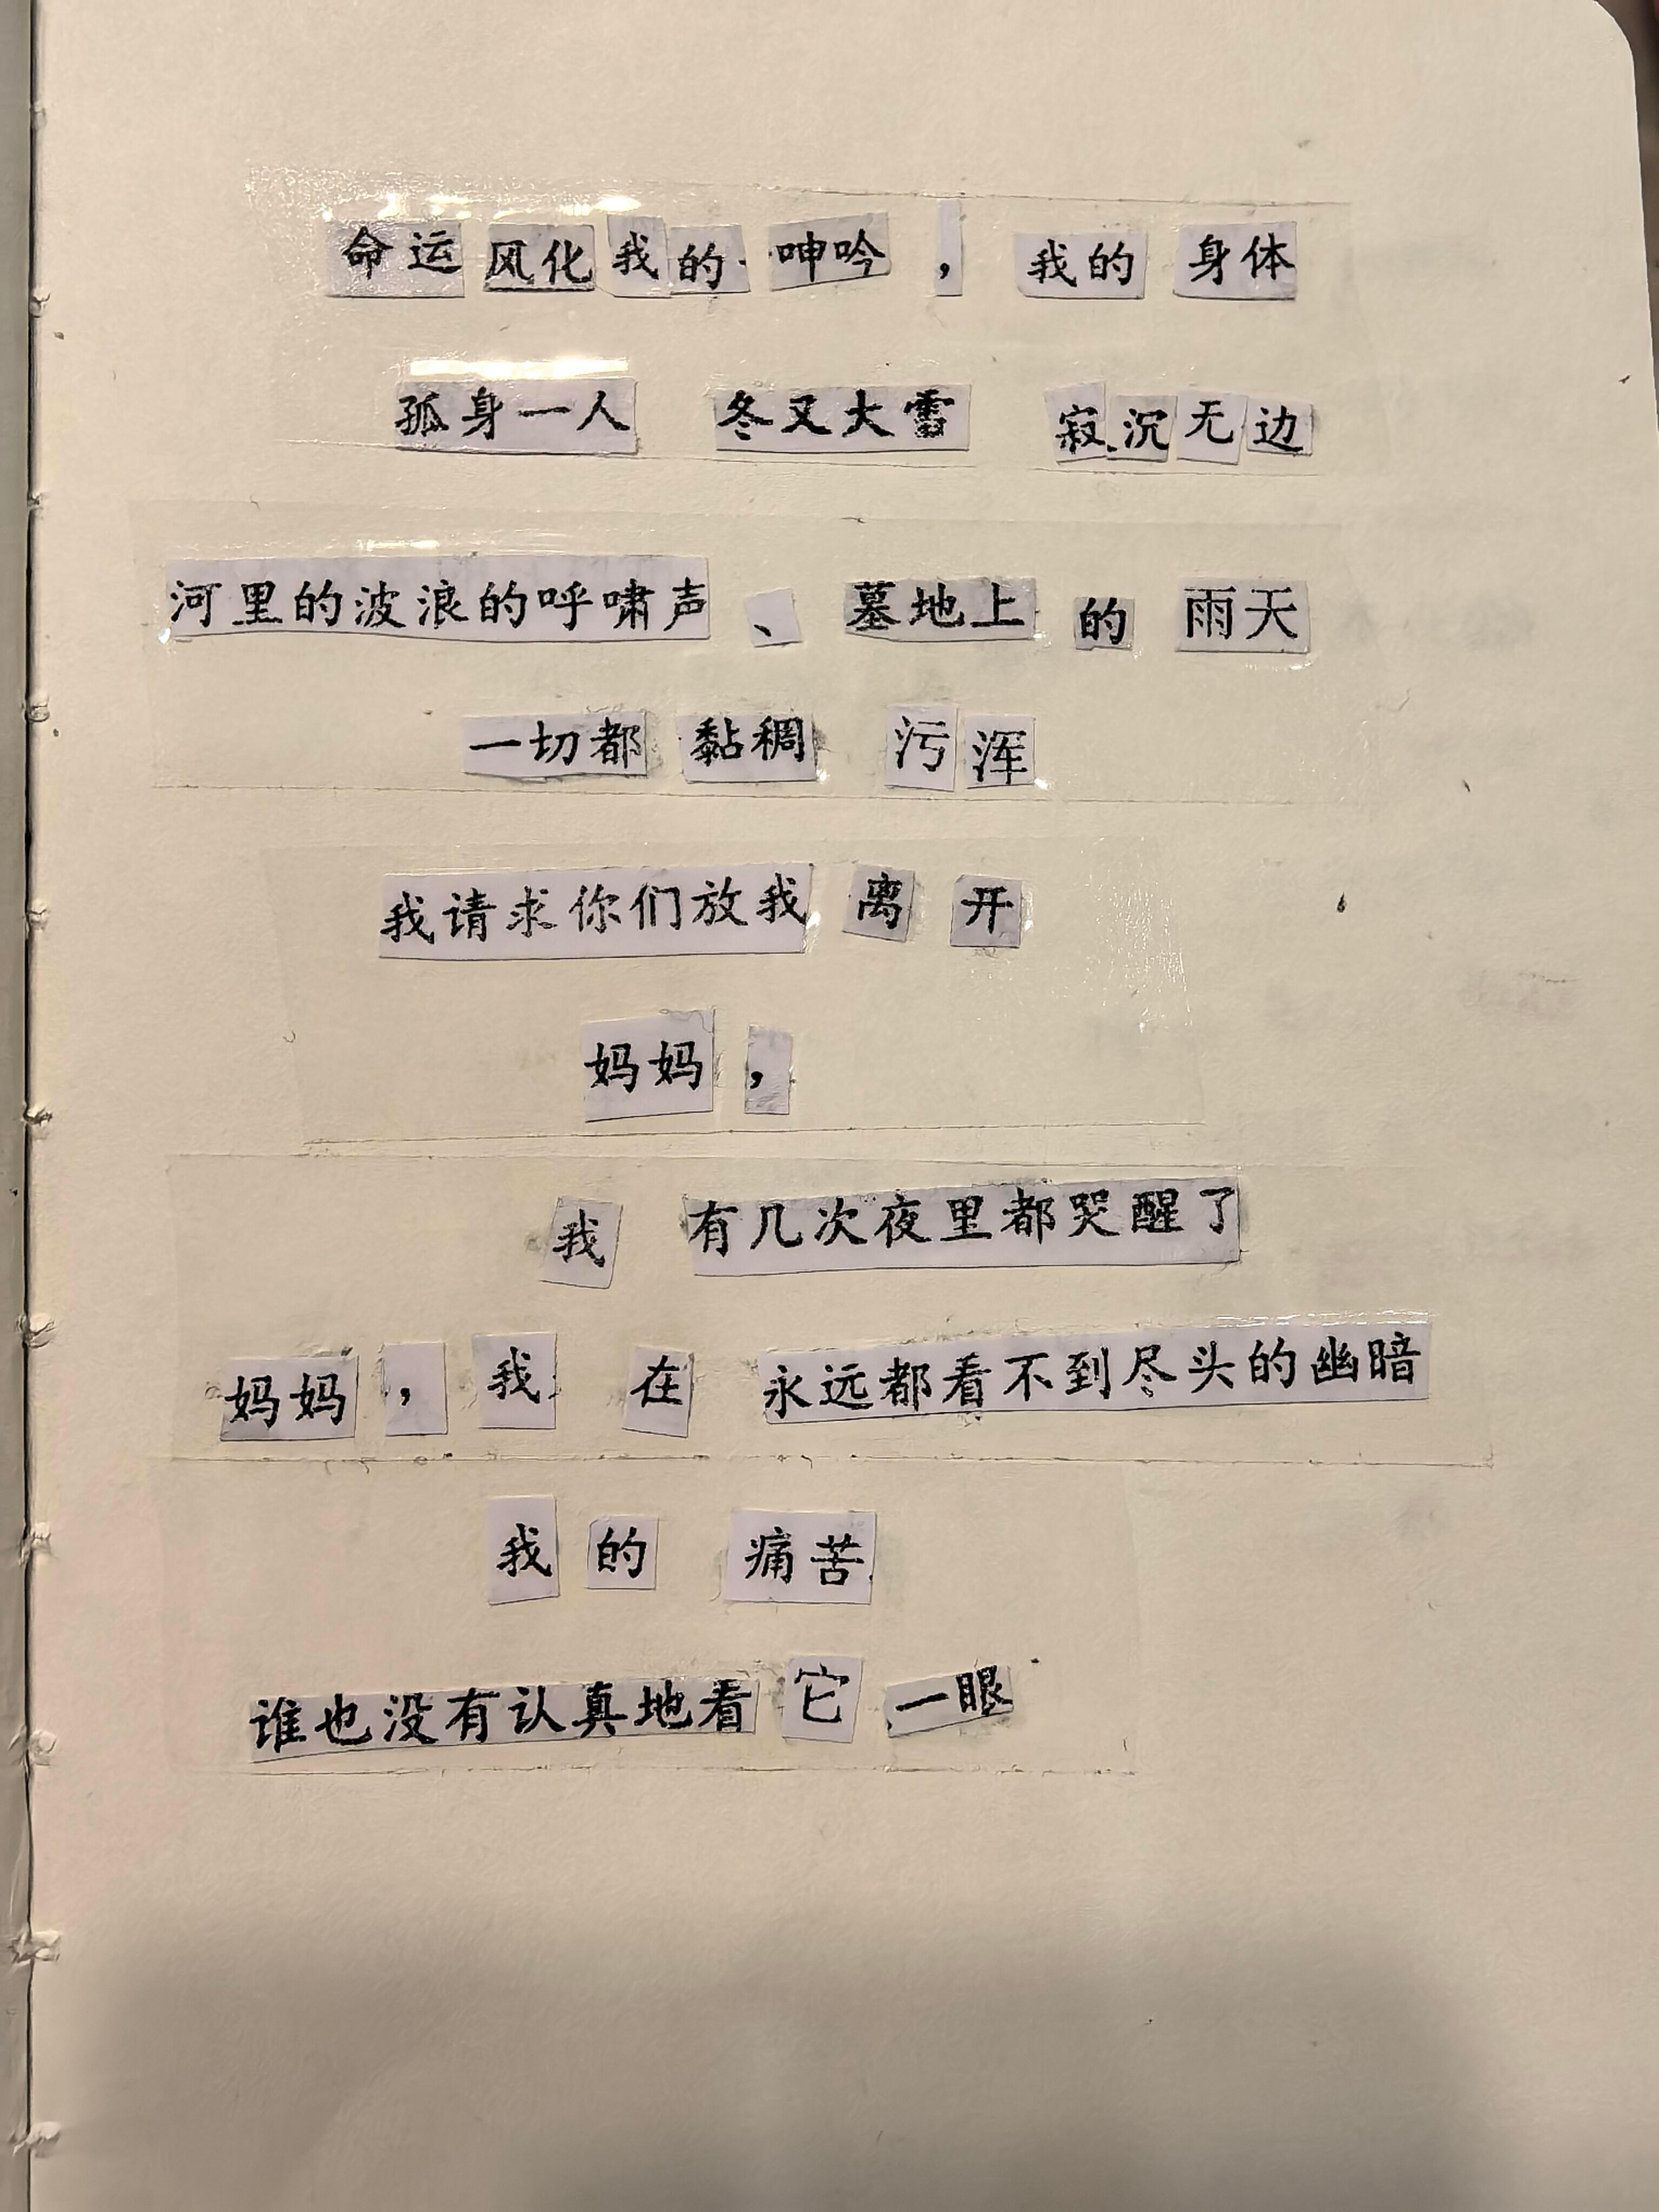 命运风化我的呻吟，我的身体
孤身一人 冬又大雪 寂沉无边
河里的波浪的呼啸声、墓地上的雨天
一切都黏稠 污浑
我请求你们放我离开
妈妈，
我 有几次夜里都哭醒了
妈妈，我在 永远都看不到尽头的幽暗
我的 痛苦
谁也没有认真地看它一眼